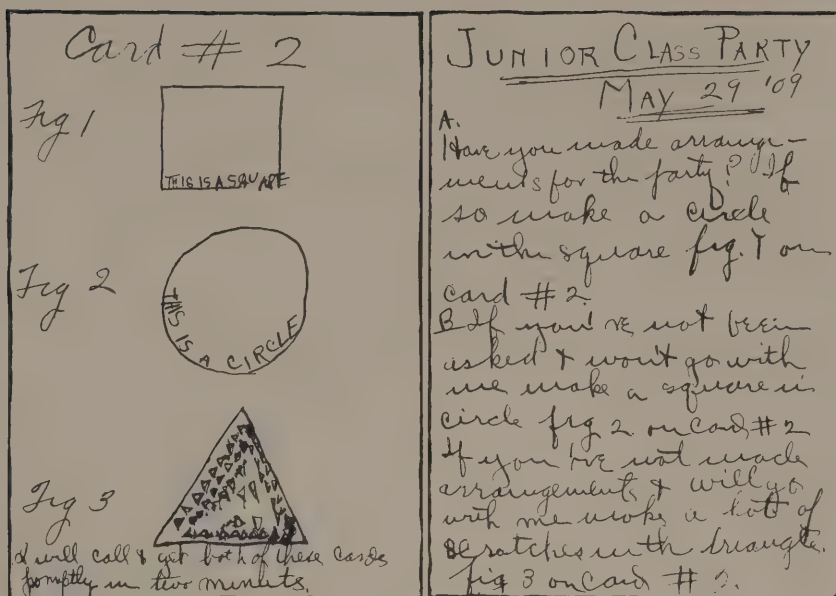 Card # 2
Fig 1
THIS IS A SQUARE
Fig 2
THIS IS A CIRCLE
Fig 3
I will call & get both of these cards
promptly in two minuts.
JUNIOR CLASS PARTY
MAY 29 '09
A.
Have you made arrange-
ments for the party? If
so make a circle
in the square fig. 1 on
card # 2.
B If you've not been
asked & won't go with
me make a square in
circle fig 2 on Card # 2
If you've not made
arrangements & will go
with me make a lot of
scratches with triangle.
fig 3 on Card # 2.